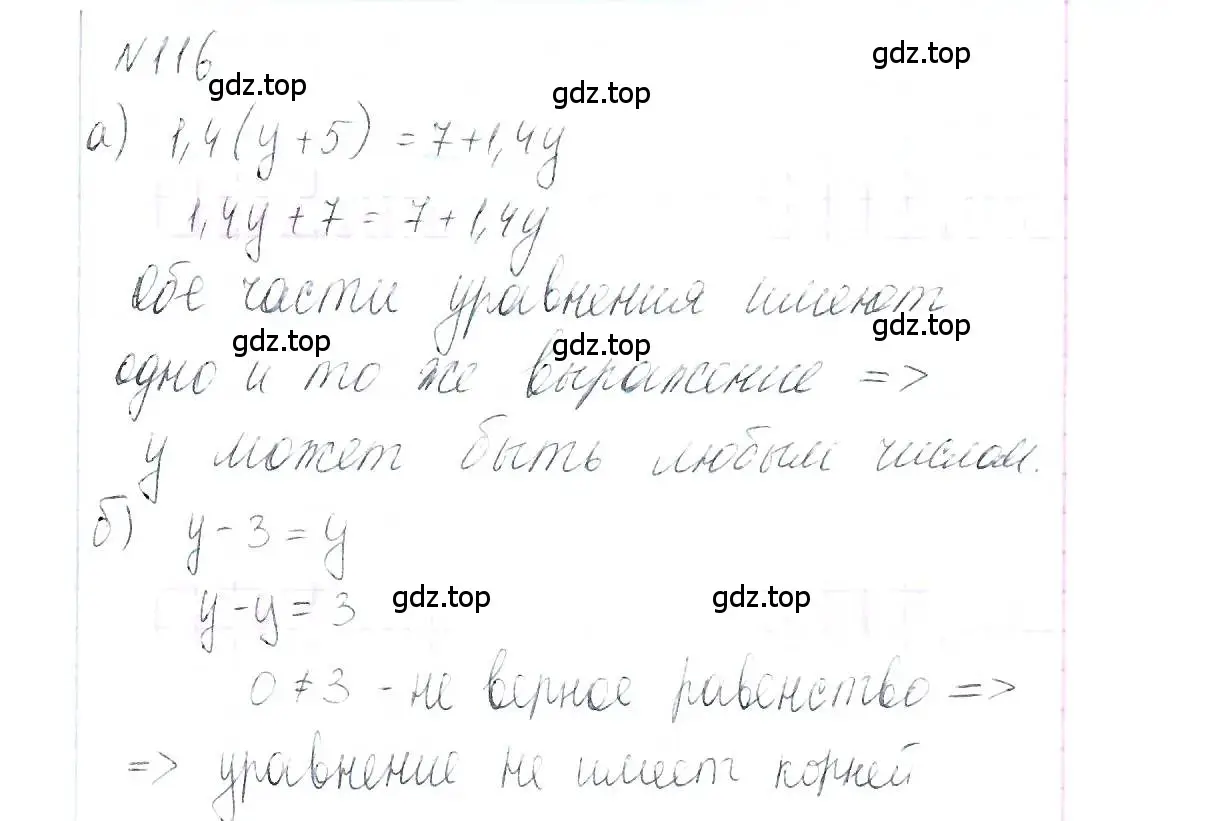 №116
gdz.top
gdz.top
gdz.top
а) 1,4(y+5) = 7+1,4y
1,4y+7 = 7+1,4y
Обе части уравнения имеют
gdz.top
gdz.top
gdz.top
одно и то же выражение =>
y может быть любым числом.
б) y-3 = y
y-y = 3
gdz.top
gdz.top
0≠3 - не верное равенство =>
=> уравнение не имеет корней